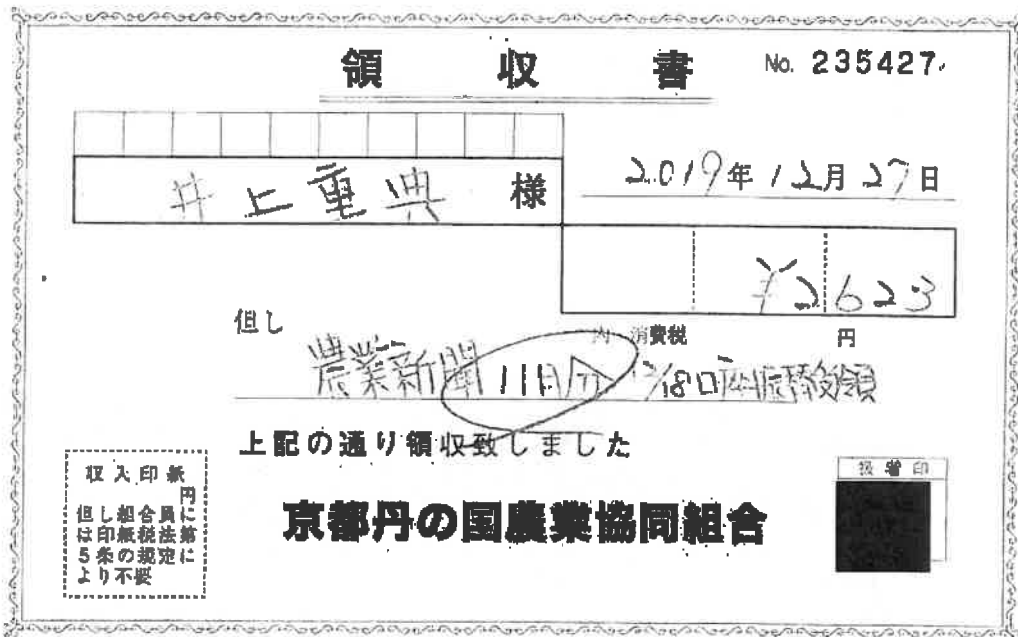 領収書 No. 235427
井上重典 様
2019年12月27日
¥2623
但し
内 消費税 円
農業新聞 11月分 12/18口座振替受領
上記の通り領収致しました
収入印紙
円
但し組合員に
は印紙税法第
5条の規定に
より不要
京都丹の国農業協同組合
扱者印